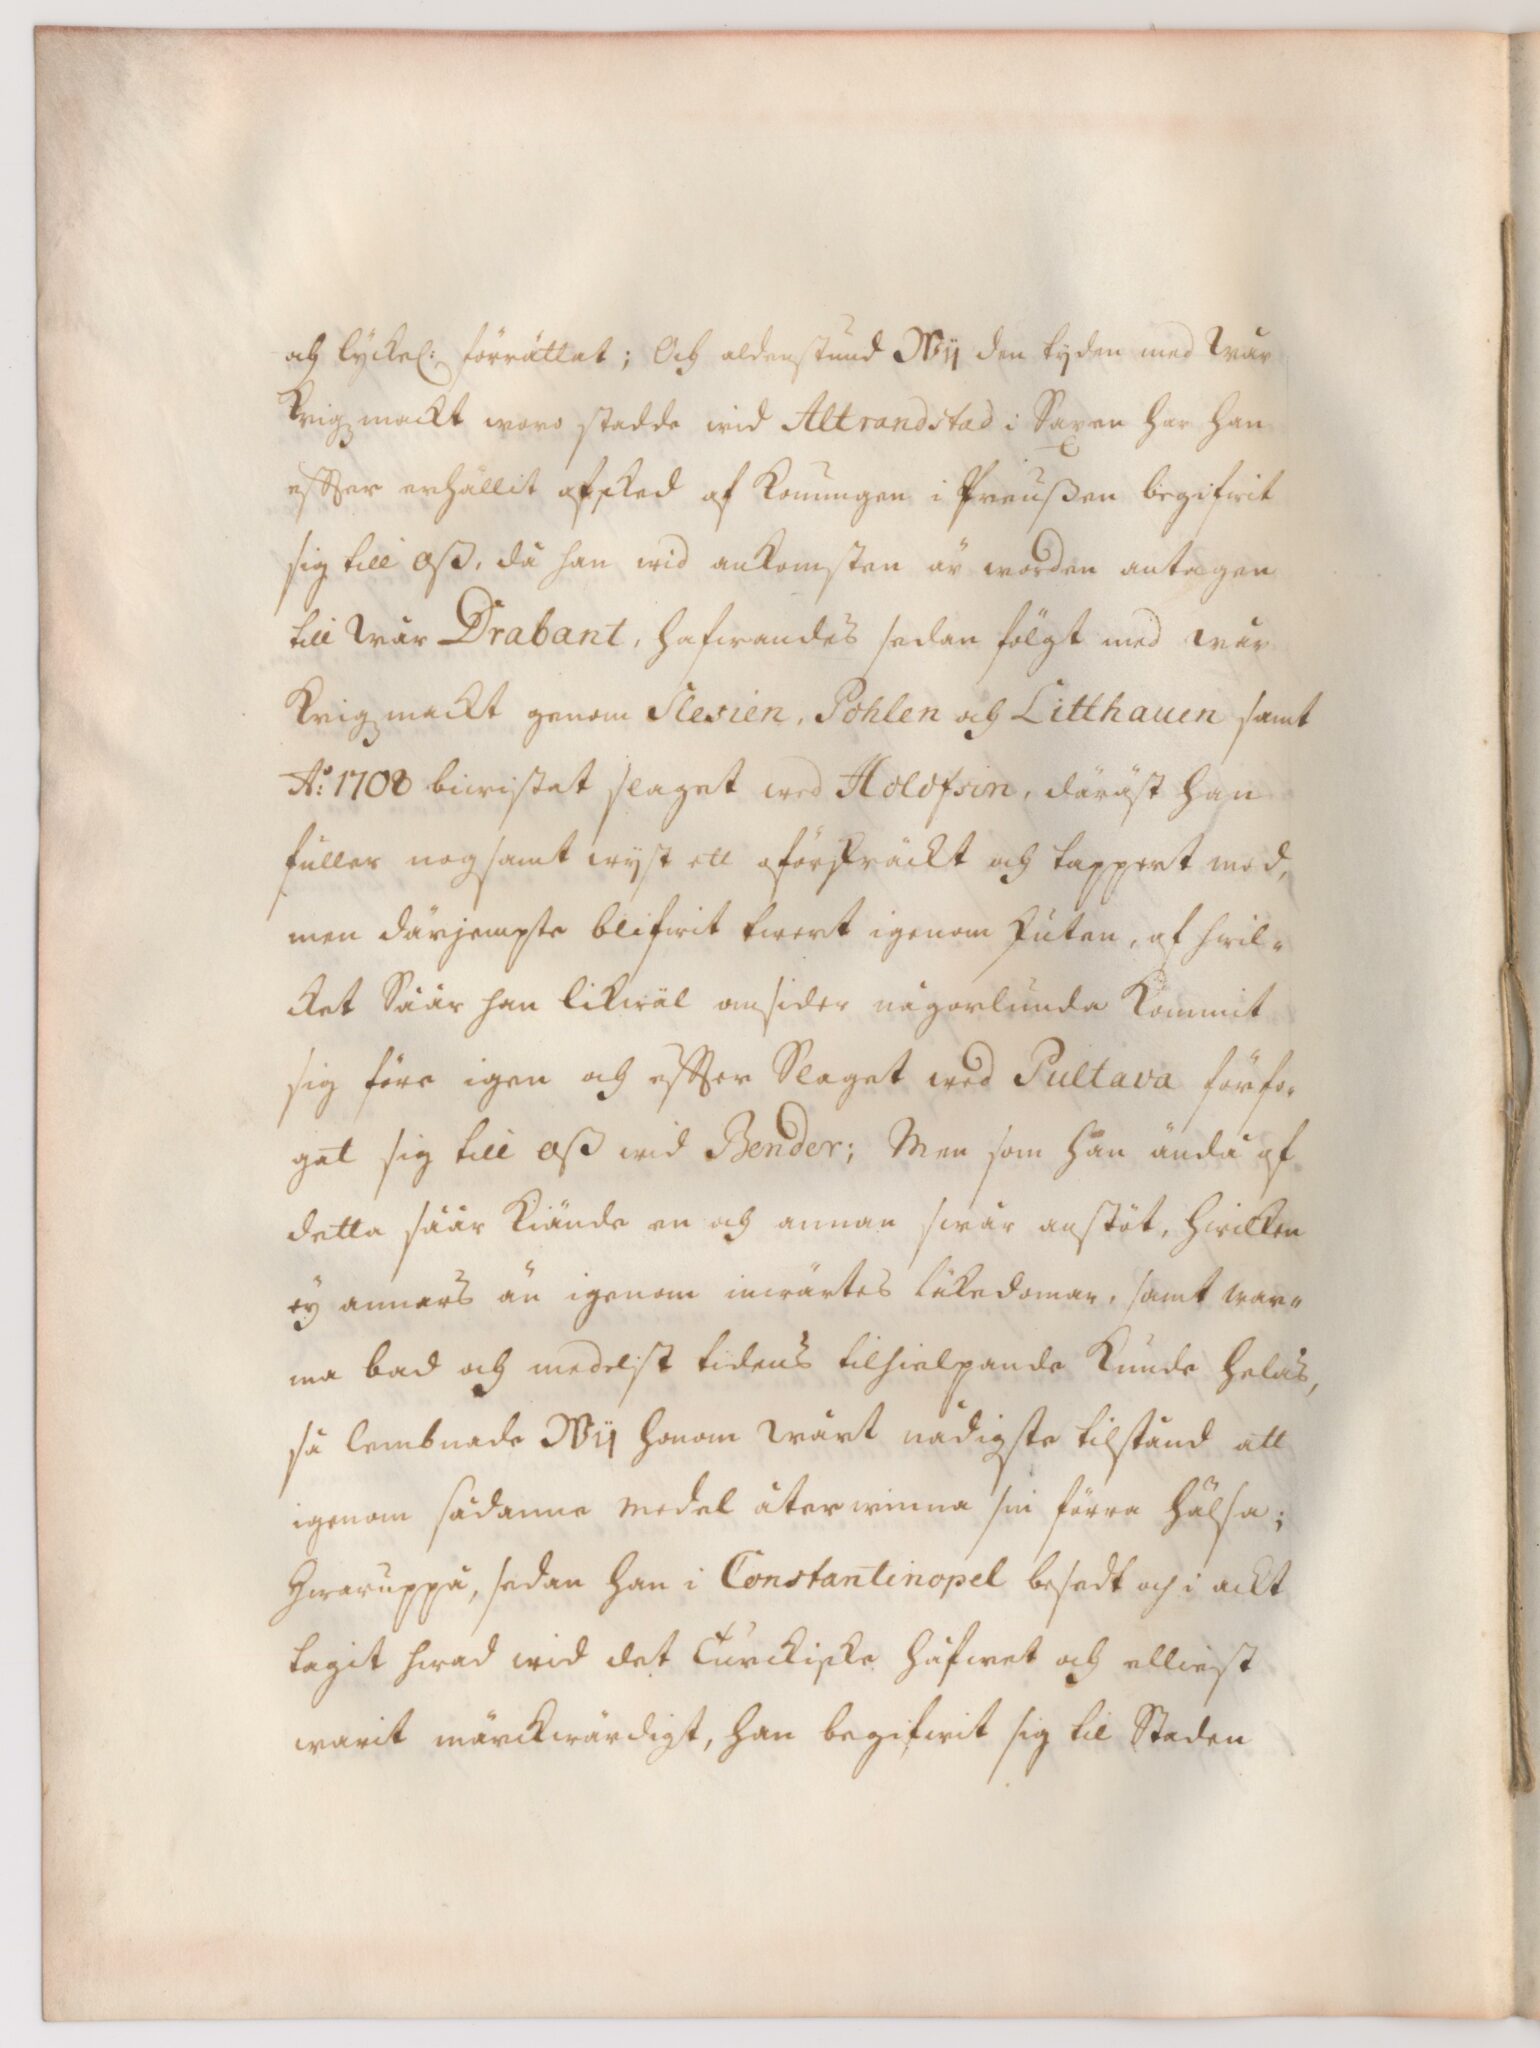 och lyckel: förrättat; Och aldenstund Wij den tyden med Wår
Krigzmackt woro stadde wid Altrandstad i Saxen har han
effter erhållit afsked af Konungen i Preußen begifwit
sig till Oß, då han wid ankomsten är worden antagen
till Wår Drabant, hafwandes sedan fölgt med wår
Krigzmackt genom Slesien, Pohlen och Litthauen samt
A:o 1708 biwistat slaget wed Holofsin, däräst han
fuller nogsamt wyst ett oförskräckt och tappert mod,
men därjempte blifwit twert igenom skuten, af hwil-
cket Såår han likwäl omsider någorlunda kommit
sig före igen och effter Slaget wed Pultava förfo-
gat sig till Oß wid Bender; Men som han ändå af
detta såår kiände en och annan swår anstöt, hwilken
ey annars än igenom inwärtes läkedomar, samt war-
ma bad och medelst tidens tilhielpande kunde helas,
så lembnade Wij honom Wårt nådigste tilstånd att
igenom sådanne medel återwinna sin förra hälsa;
Hwaruppå, sedan han i Constantinopel besedt och i ackt
tagit hwad wid det Turckiske häfwet och elliest
warit märckwärdigt, han begifwit sig til Staden